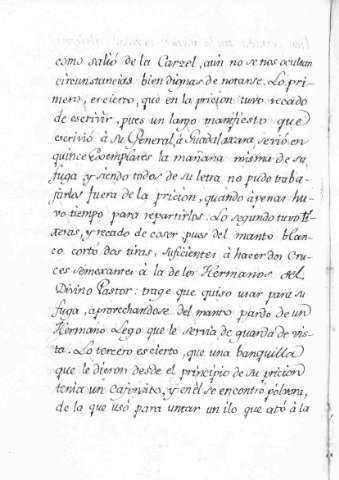 como salió de la Carzel, aun no se nos ocultan
circunstancias bien dignas de notarse. Lo pri-
mero, es cierto, que en la pricion tuvo recado
de escrivir, pues un largo manifiesto que
escrivió à su General, à Guadalaxara, se vió en
quince Exemplares la mañana misma de su
fuga y siendo todos de su letra no pudo traba-
jarlos fuera de la pricion, quando àpenas hu-
vo tiempo para repartirlos. Lo segundo tuvo ti-
xeras, y recado de coser, pues del manto blan-
co cortó dos tiras, suficientes à hacer dos Cru-
ces semexantes à la de los Hermanos del
Divino Pastor: trage que quiso usar para su
fuga, aprorechandose del manto pardo de un
Hermano Lego que le servia de guarda de vis-
ta. Lo tercero es cierto, que una banquilla
que le dieron desde el principio de su pricion
tenia un Cajonsito, y en él se encontró pólvora,
de la que usó para untar un ilo que ató à la